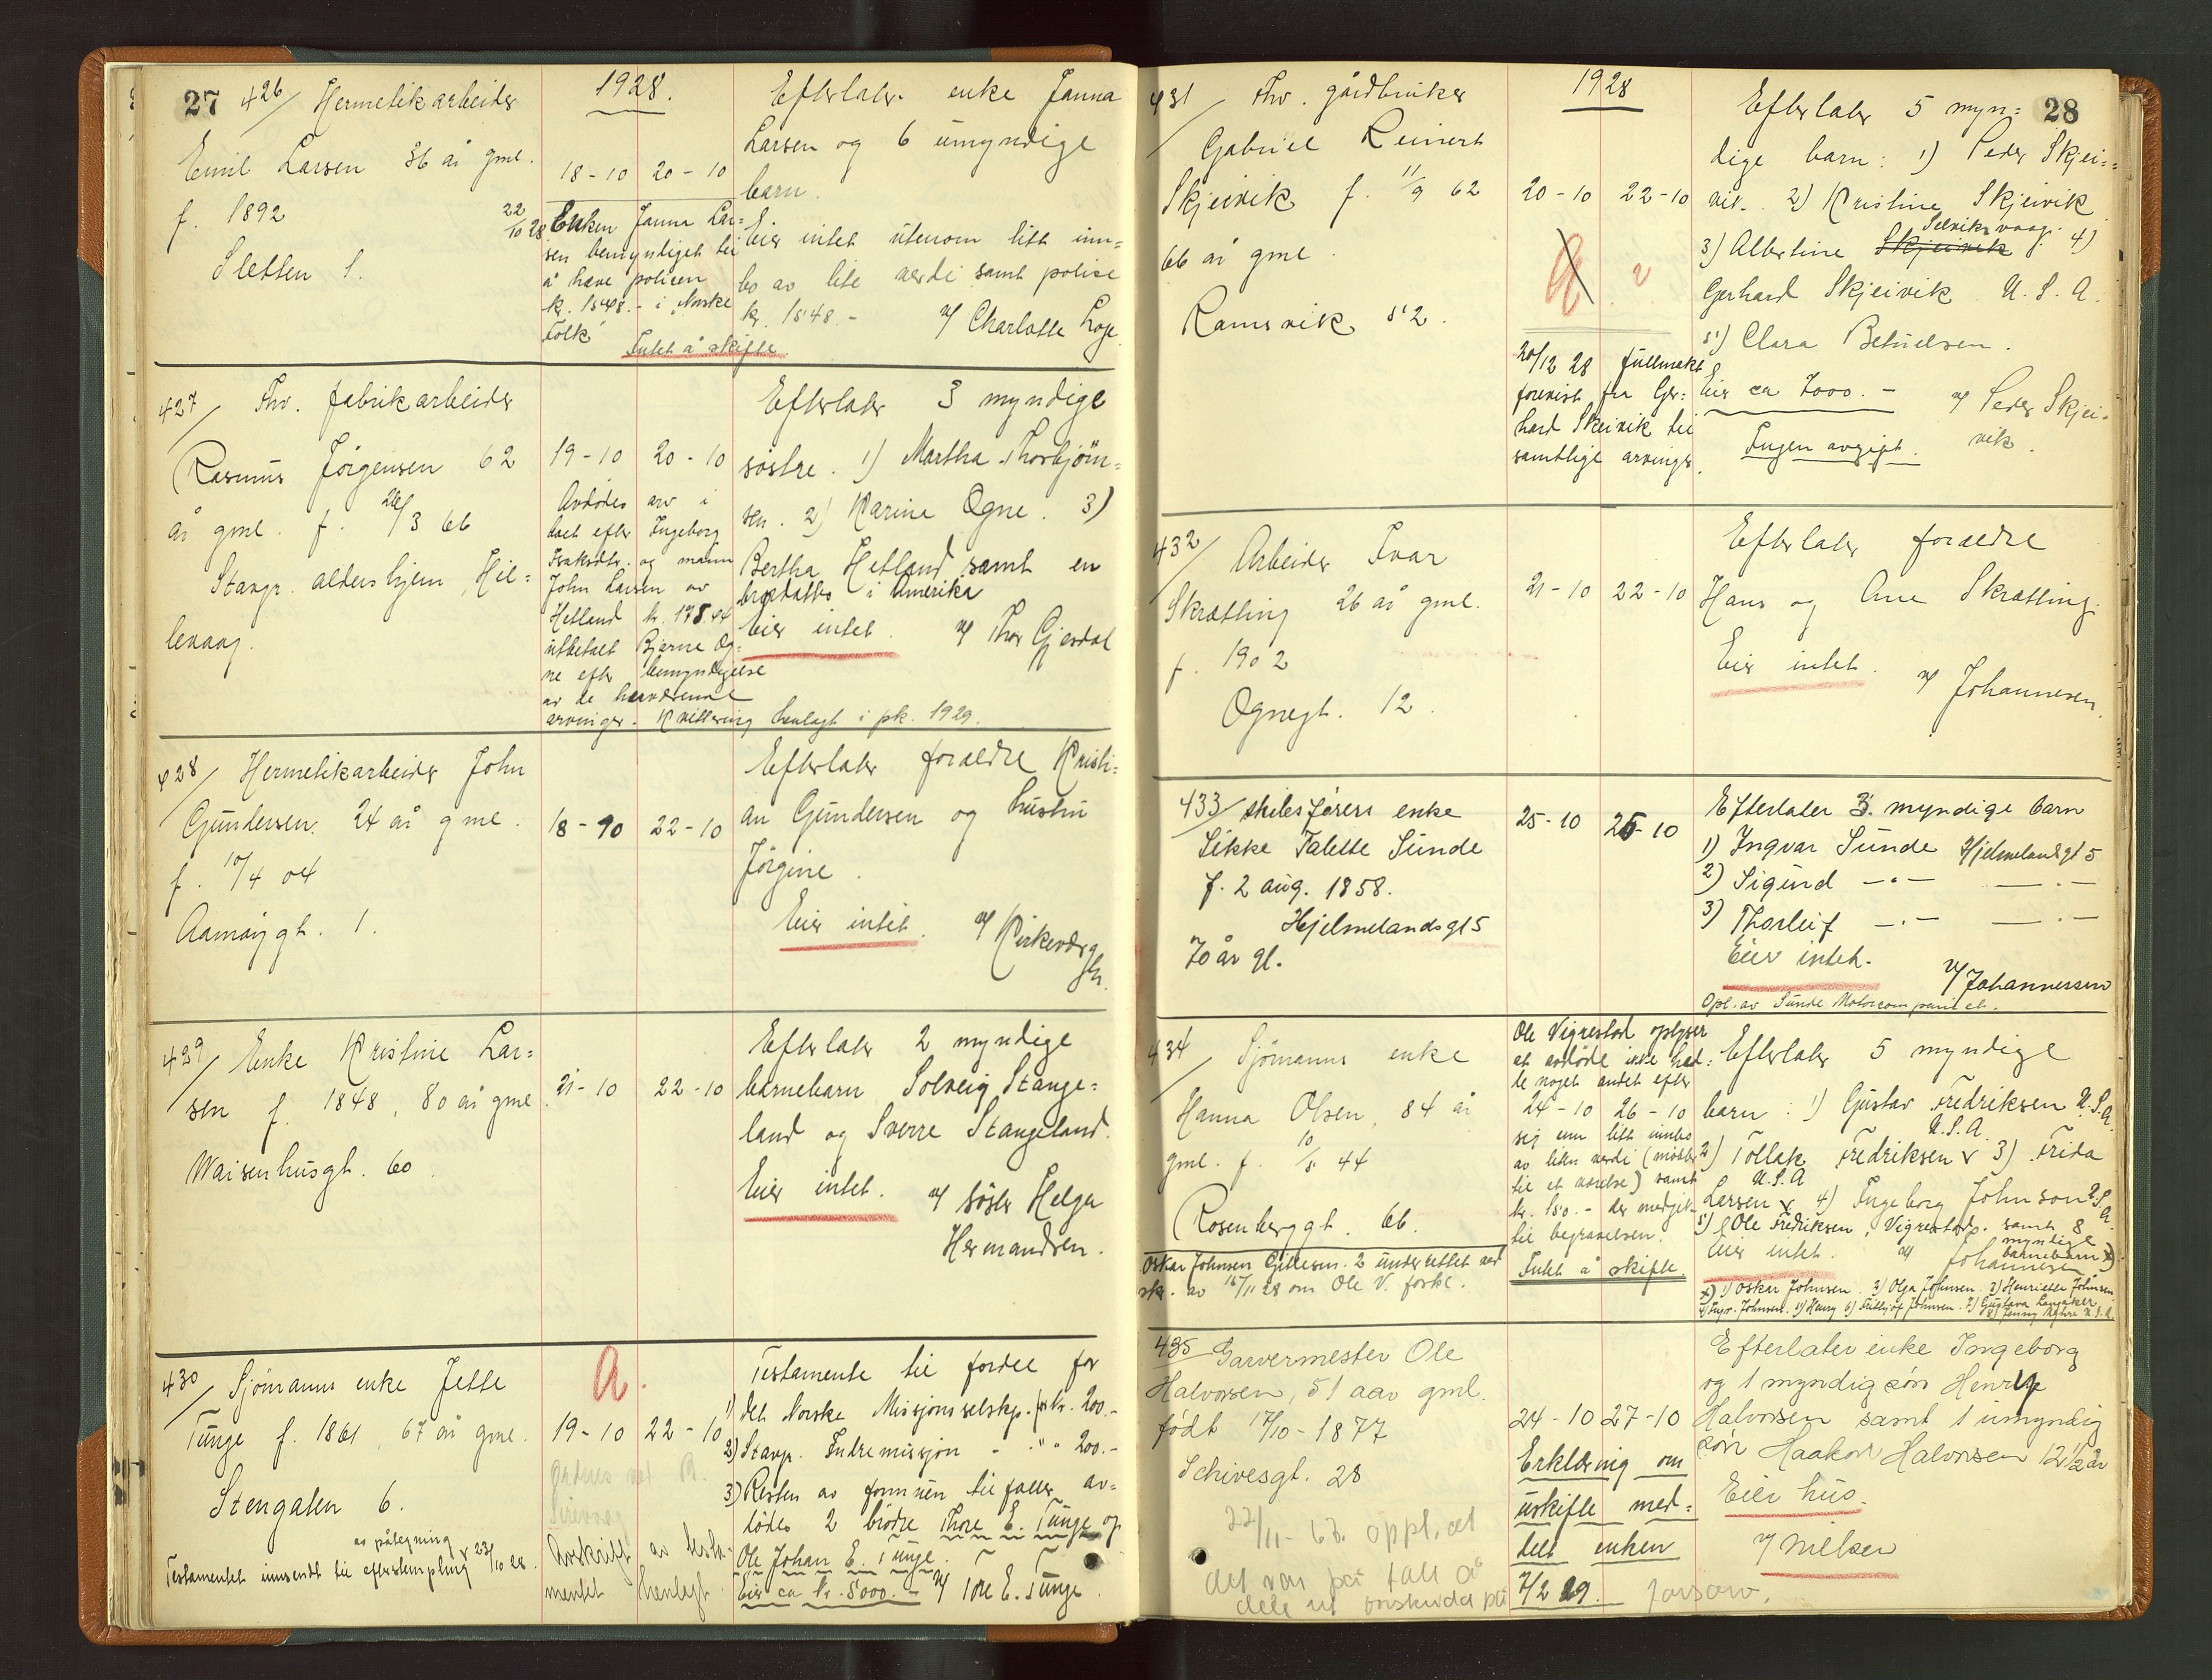 27
1928.
426/ Hermetikarbeider
Emil Larsen 36 år gml.
f. 1892
Sletten 1.
18-10 20-10
22/10 28 Enken Janna Lar=
sen bemyndiget til
å hæve policen
kr. 1548.- i "Norske
Folk"
Intet å skifte.
Efterlater enke Janna
Larsen og 6 umyndige
barn.
Eier intet utenom litt inn=
bo av lite verdi samt polise
kr. 1548.-
v/ Charlotte Loge
427/ Fhv. fabrikarbeider
Rasmus Jørgensen 62
år gml. f. 26/3 66
Stavgr. aldershjem, Hil=
levaag.
19-10 20-10
Avdødes arv i
boet efter Ingeborg
Isaksdtr. og mann
John Larsen av
Hetland kr. 178.44
utbetalt Bjarne Og=
ne efter bemyndigelse
av de herværende
arvinger. Kvittering henlagt i pk. 1929.
Efterlater 3 myndige
søstre. 1) Martha Thorbjørn=
sen. 2) Karine Ogne. 3)
Bertha Hetland samt en
i Amerika
Eier intet. v/ Thor Gjesdal
428/ Hermetikarbeider John
Gundersen. 24 år gml.
f. 10/4 04
Aamøygt. 1.
18-10 22-10
Efterlater foreldre Kristi=
an Gundersen og hustru
Jørgine.
Eier intet. v/ Kirkeverg
429/ Enke Kristine Lar=
sen f. 1848, 80 år gml.
Waisenhusgt. 60
21-10 22-10
Efterlater 2 myndige
barnebarn Solveig Stange=
land og Sverre Stangeland.
Eier intet. v/ søster Helga
Hermandsen.
430/ Sjømanns enke Jette
Tunge f. 1861, 67 år gml.
Stengaten 6.
av påtegning
Testamentet innsendt til efterstempling 23/10 28.
a.
19-10 22-10
Avskrift av testa=
mentet henlagt
Testamente til fordel for
1) det Norske Misjonsselskp. kr. 200.-
2) Stavgr. Indremisjon - " - 200.-
3) Resten av formuen tilfaller av=
dødes 2 brødre Thore E. Tunge og
Ole Johan E. Tunge.
Eier ca kr. 5000.- v/ Tore E. Tunge.
28
1928
431/ Fhv. gårdbruker
Gabriel Reinert
Skjeivik f. 11/9 62
66 år gml.
Ramsvik 52.
20-10 22-10
20/12 28 fullmakt
forevist fra Ger=
hard Skeivik til
samtlige arvinger.
Efterlater 5 myn=
dige barn: 1) Peder Skjei=
vik. 2) Kristine Skjeivik
Selviksvaag.
3) Albertine Skjeivik 4)
Gerhard Skjeivik U.S.A.
5) Clara Betuelsen.
Eier ca 7000.- v/ Peder Skjei=
vik.
Ingen avgift.
432/ Arbeider Ivar
Skrætting 26 år gml.
f. 1902
Ognegt. 12.
21-10 22-10
Efterlater foreldre
Hans og Ane Skrætting.
Eier intet. v/ Johannesen.
433/ skibsførers enke
Sikke Talette Sunde
f. 2 aug. 1858.
Hjelmelandsgt 5
70 år gl.
25-10 25-10
Efterlater 3 myndige barn
1) Ingvar Sunde Hjelmelandsgt 5
2) Sigurd -"- -"-
3) Thorleif -"- -"-
Eier intet. v/ Johannessen
Opl. av Sunde Motorcompaniet.
434/ Sjømanns enke
Hanna Olsen, 84 år
gml. f. 10/5 44
Rosenberggt. 66.
Oskar Johnsen Gillesen. 2 underrettet ved
skr. av 15/11 28 om Ole V. forkl.
Ole Vigrestad oplyser
at avdøde ikke had=
de noget andet efter
24-10 26-10
sig enn litt innbo
av liten verdi (møbler
til et værelse) samt
kr. 150.- der medgikk
til begravelsen.
Intet å skifte.
Efterlater 5 myndige
barn: 1) Gustav Fredriksen U.S.A.
U.S.A.
2) Tollak Fredriksen x 3) Frida
U.S.A
Larsen x 4) Ingeborg Johnson U.S.A.
5) Ole Fredriksen, Vigrestad. samt 8
myndige
barnebarn x)
Eier intet. v/ Johannesen
x) 1) Oskar Johnsen. 2) Olga Johnsen. 3) Henriette Johnsen.
4) Ingv. Johnsen. 5) Henry 6) Fritjof Johnsen. 7) Gustava Langaker
8) Jenny U.S.A.
435 Garvermester Ole
Halvorsen, 51 aar gml.
født 17/10-1877
Schivesgt. 28
22/11-63. oppl. at
det var på tale å
dele ut
24-10 27-10
Erklæring om
uskifte med=
delt enken
7/2 29.
Efterlater enke Ingeborg
og 1 myndig søn Henrik
Halvorsen samt 1 umyndig
søn Haakon Halvorsen 12 1/2 år
Eier hus.
v/ Nielsen